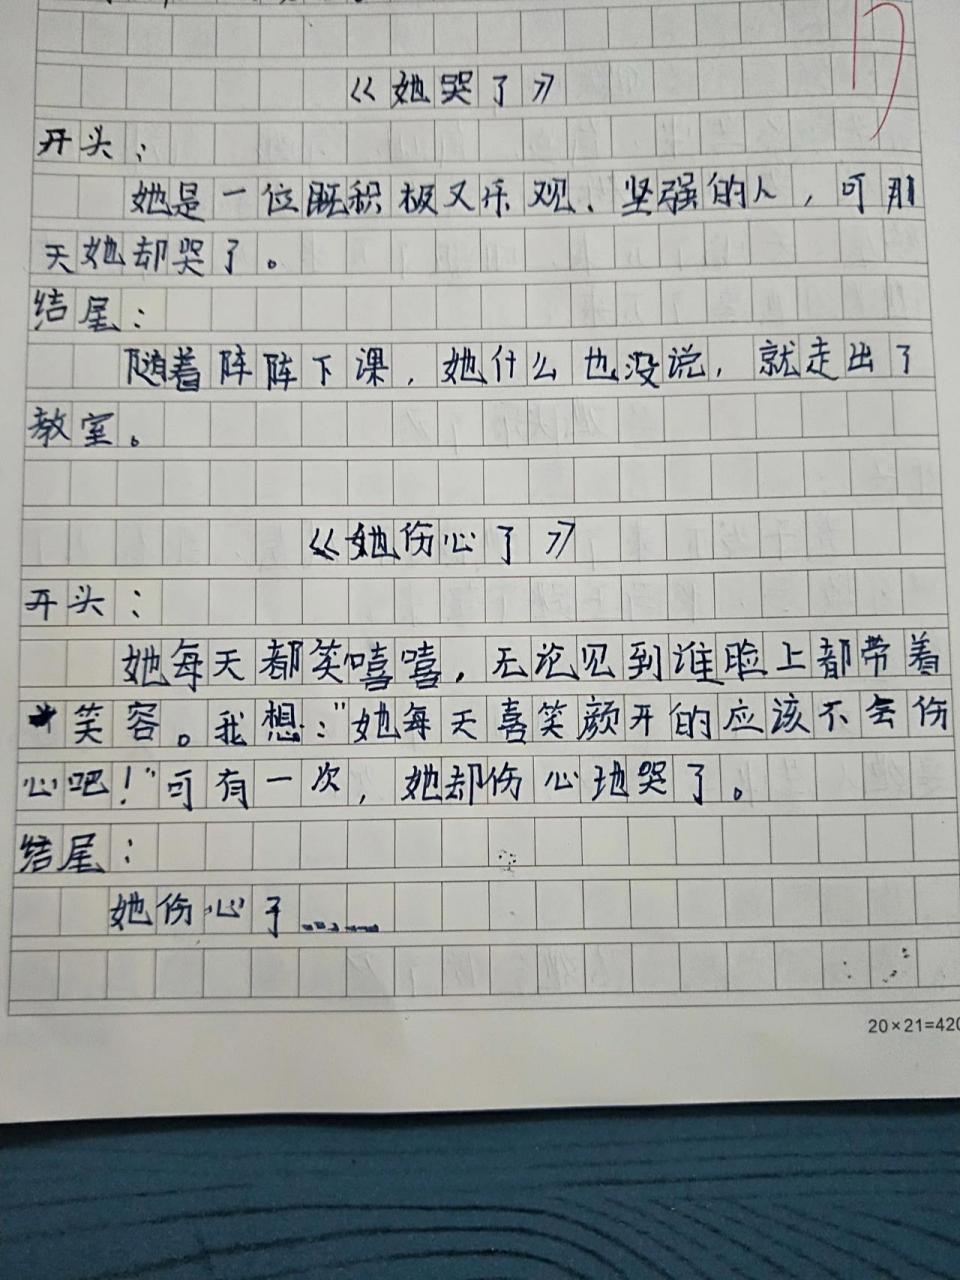 《她哭了》
开头：
她是一位既积极又乐观、坚强的人，可那
天她却哭了。
结尾：
随着阵阵下课，她什么也没说，就走出了
教室。
《她伤心了》
开头：
她每天都笑嘻嘻，无论见到谁脸上都带着
笑容。我想："她每天喜笑颜开的应该不会伤
心吧！"可有一次，她却伤心地哭了。
结尾：
她伤心了……
20×21=420